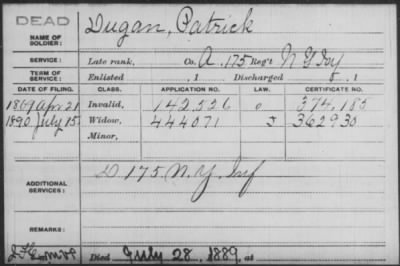 DEAD
NAME OF SOLDIER: Dugan, Patrick
SERVICE: Late rank, Co. A, 175 Reg't N Y Inf
TERM OF SERVICE: Enlisted , 1 Discharged , 1
DATE OF FILING. CLASS. APPLICATION NO. LAW. CERTIFICATE NO.
1869 Apr. 21 Invalid, 142,526 0 374,185
1890 July 15 Widow, 444071 J 362930
Minor,
ADDITIONAL SERVICES: D 175 N. Y. Inf
REMARKS:
Died July 28, 1889, at